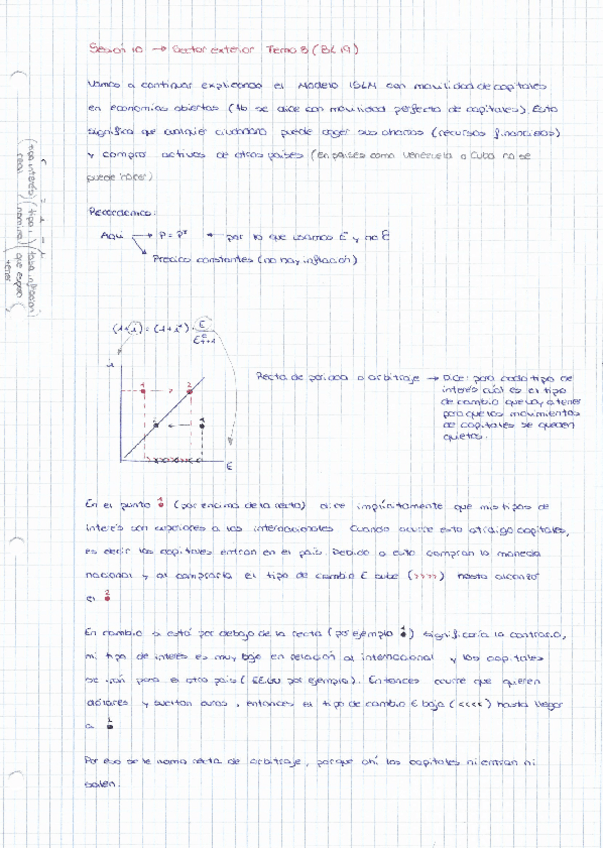 Sesión 10 → Sector exterior Tema 8 (BL 19)
Vamos a continuar explicando el Modelo IS-LM con movilidad de capitales
en economías abiertas (Tb se dice con movilidad perfecta de capitales). Esto
significa que cualquier ciudadano puede coger sus ahorros (recursos financieros)
y comprar activos de otros países (en países como Venezuela o Cuba no se
puede hacer)
Recordemos:
Aquí → P = P* ← por lo que usamos E y no
Precios constantes (no hay inflación)
r = i -
(tipo interés real) (tipo i. nominal) (tasa inflación que espero tener)
(1+i) = (1+i*) · E / Eᵉt+1
i
1 2
2 1
E
Recta de paridad o arbitraje → Dice: para cada tipo de
interés cuál es el tipo
de cambio que voy a tener
para que los movimientos
de capitales se queden
quietos.
En el punto 1 (por encima de la recta) dice implícitamente que mis tipos de
interés son superiores a los internacionales. Cuando ocurre esto atraigo capitales,
es decir los capitales entran en el país. Debido a esto compran la moneda
nacional y al comprarla el tipo de cambio E sube (>>>>) hasta alcanzar
el 2
En cambio si está por debajo de la recta (por ejemplo 1) significaría lo contrario,
mi tipo de interés es muy bajo en relación al internacional y los capitales
se irán para el otro país (EEUU por ejemplo). Entonces ocurre que quieren
dólares y sueltan euros, entonces el tipo de cambio E baja (<<<<) hasta llegar
a 2
Por eso se le llama recta de arbitraje, porque ahí los capitales ni entran ni
salen.